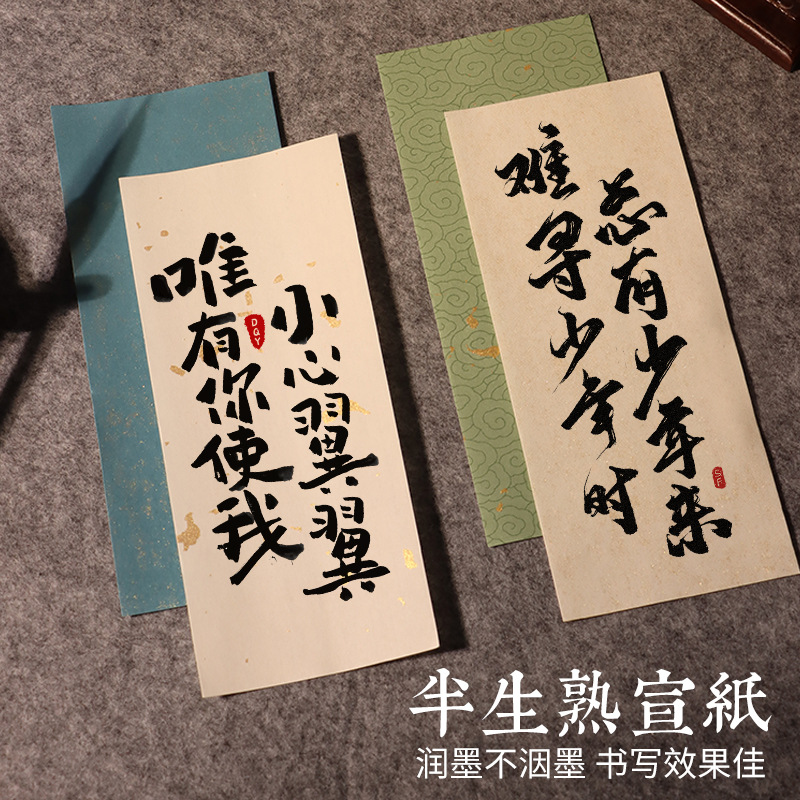 唯有你使我
小心翼翼
DQY
难寻少年时
总有少年来
SF
半生熟宣紙
润墨不洇墨 书写效果佳